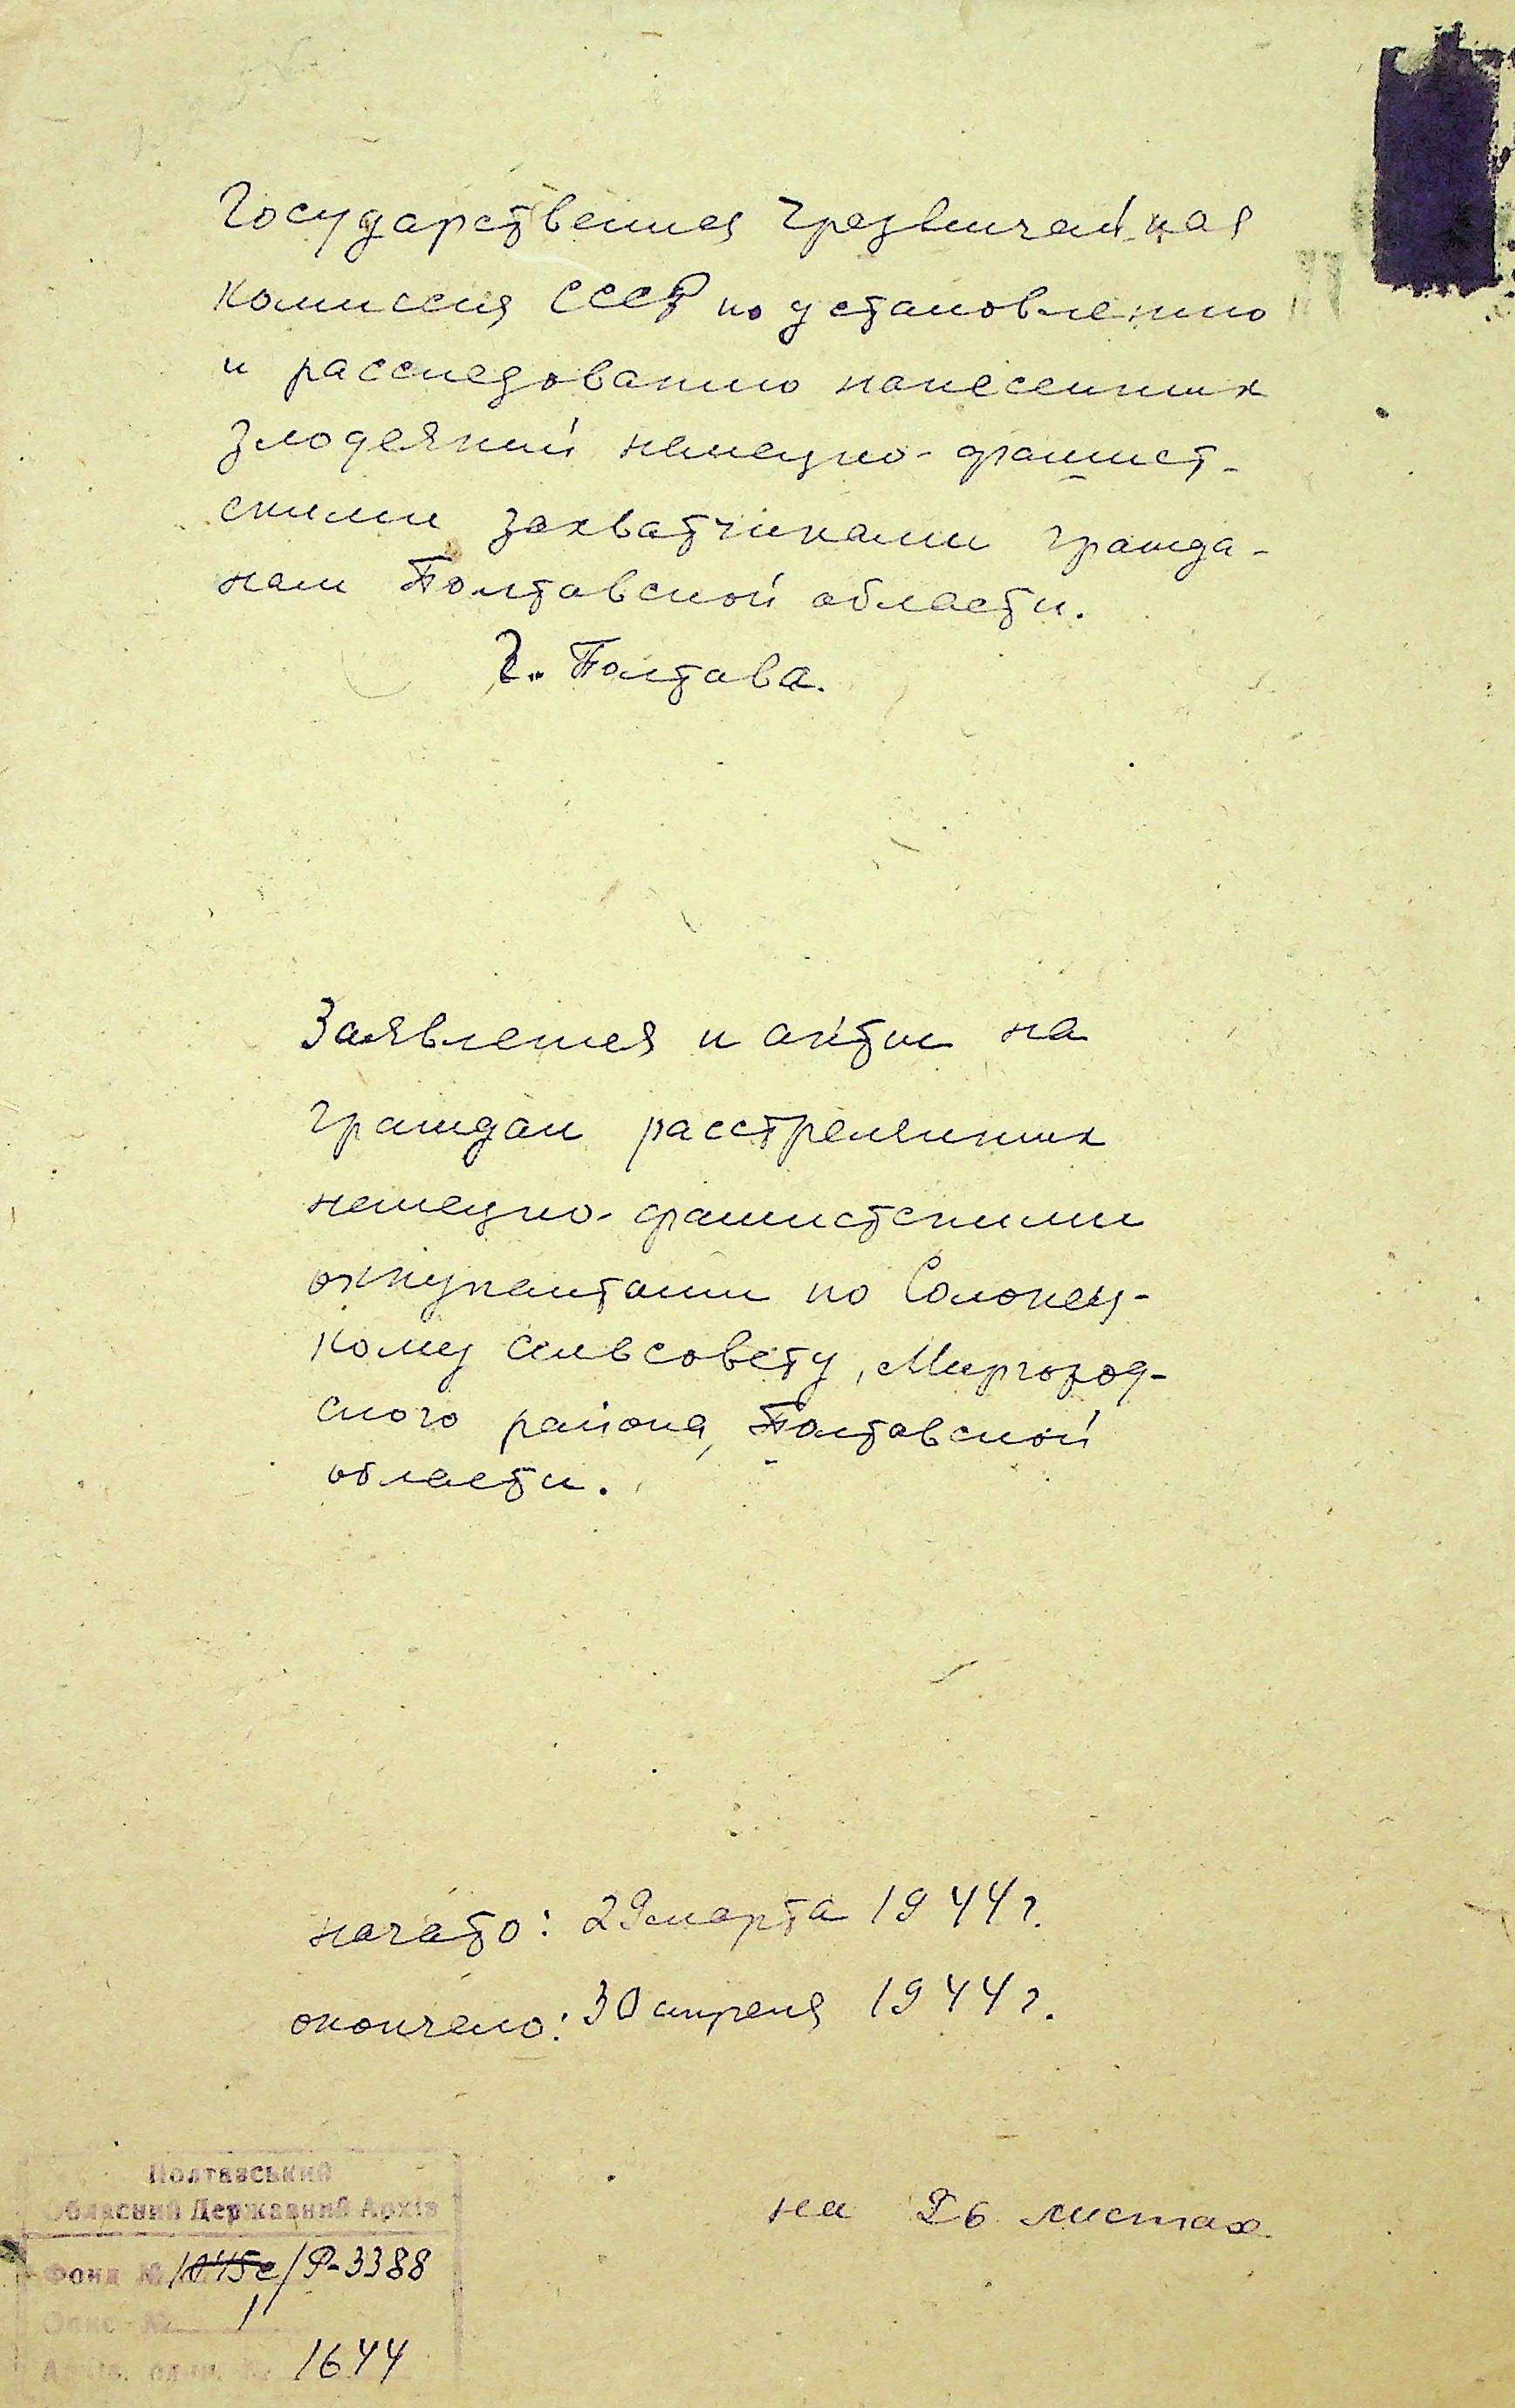 Государственная Чрезвычайная
комиссия СССР по установлению
и расследованию нанесенных
злодеяний немецко-фашист-
скими захватчиками гражда-
нам Полтавской области.
г. Полтава.
Заявления и акты на
граждан расстрелянных
немецко-фашистскими
оккупантами по Солонец-
кому сельсовету, Миргород-
ского района, Полтавской
области.
начато: 29 марта 1944 г.
окончено: 30 апреля 1944 г.
на 26 листах
Полтавський
Обласний Державний Архів
Фонд № /Р-3388
Опис № 1
1644